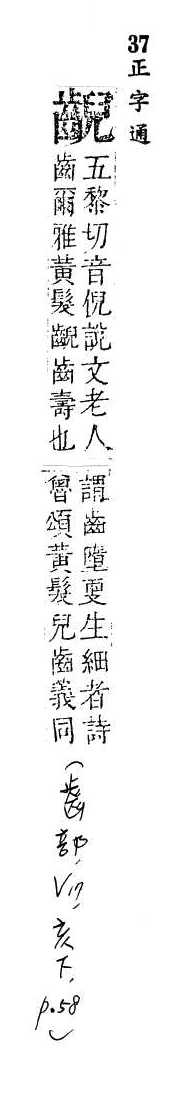 37 正字通
齯
五黎切音倪說文老人
齒爾雅黃髮齯齒壽也
謂齒墮更生細者詩
魯頌黃髮兒齒義同
(齒部, V17, 亥下, p.58)